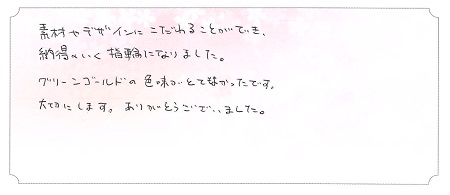 素材やデザインにこだわることができ、
納得のいく指輪になりました。
グリーンゴールドの色味がとても良かったです。
大切にします。ありがとうございました。